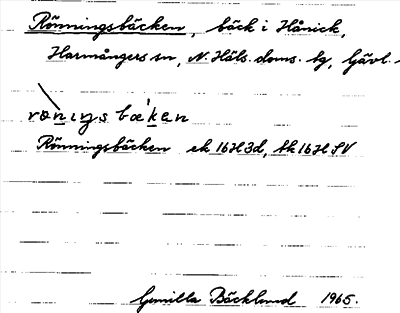 Rönningsbäcken, bäck i Hånick,
Harmångers sn, N. Häls. doms. tg, Gävl.
rønıŋs bæ'ken
Rönningsbäcken ek 16H3d, tk 16H SV
Gunilla Bäcklund 1965.